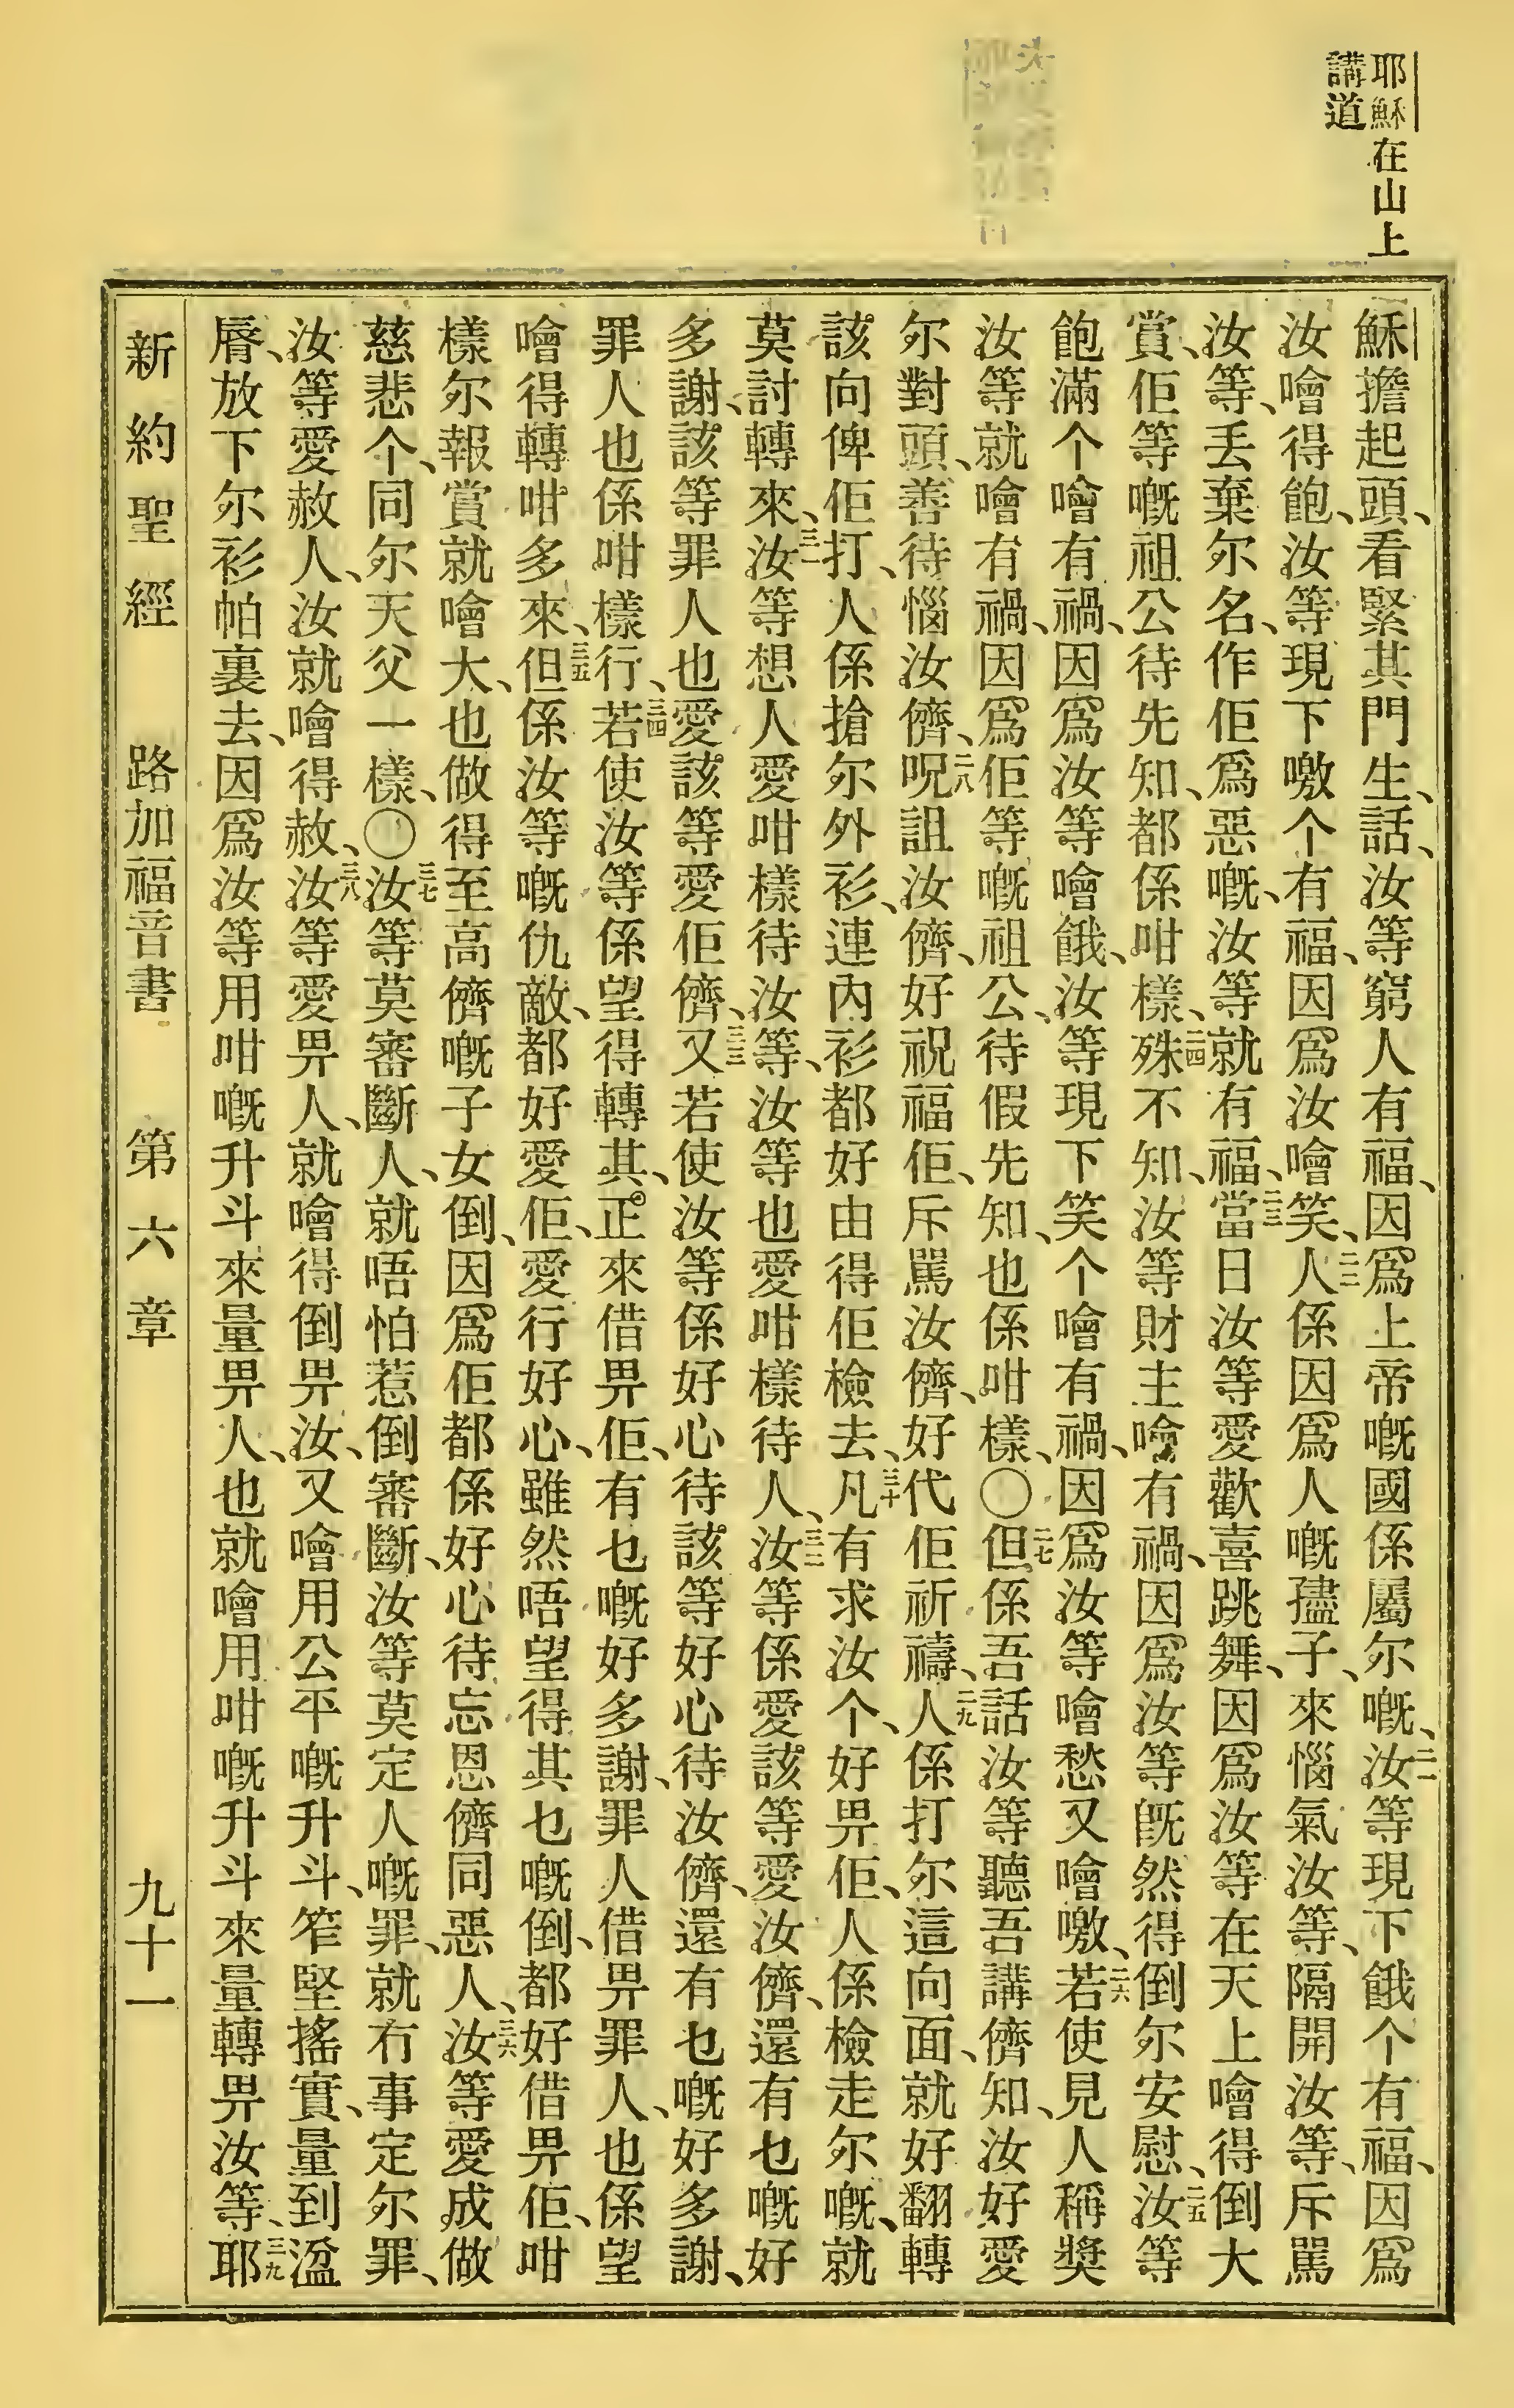 耶穌在山上
講道
穌擔起頭、看緊其門生、話、汝等窮人有福、因爲上帝嘅國係屬尔嘅、二一汝等現下餓个有福、因爲
汝噲得飽、汝等現下噭个有福、因爲汝噲笑、二二人係因爲人嘅孻子、來惱氣汝等、隔開汝等、斥駡
汝等、丢棄尔名、作佢爲惡嘅、汝等就有福、二三當日汝等愛歡喜跳舞、因爲汝等在天上噲得倒大
賞、佢等嘅祖公待先知、都係咁樣、二四殊不知、汝等財主噲有禍、因爲汝等旣然得倒尔安慰、二五汝等
飽滿个噲有禍、因爲汝等噲餓、汝等現下笑个噲有禍、因爲汝等噲愁又噲噭、二六若使見人稱獎
汝等就噲有禍、因爲佢等嘅祖公、待假先知、也係咁樣、〇二七但係吾話汝等聽吾講儕知、汝好愛
尔對頭、善待惱汝儕、二八呪詛汝儕、好祝福佢、斥駡汝儕、好代佢祈禱、二九人係打尔這向面、就好翻轉
該向俾佢打、人係搶尔外衫、連內衫都好由得佢檢去、三十凡有求汝个、好畀佢、人係檢走尔嘅、就
莫討轉來、三一汝等想人愛咁樣待汝等、汝等也愛咁樣待人、三二汝等係愛該等愛汝儕、還有乜嘅好
多謝、該等罪人也愛該等愛佢儕、三三又若使汝等係好心待該等好心待汝儕、還有乜嘅好多謝、
罪人也係咁樣行、三四若使汝等係望得轉其、正來借畀佢、有乜嘅好多謝、罪人借畀罪人、也係望
噲得轉咁多來、三五但係汝等嘅仇敵、都好愛佢、愛行好心、雖然唔望得其乜嘅倒、都好借畀佢、咁
樣尔報賞就噲大、也做得至高儕嘅子女倒、因爲佢都係好心待忘恩儕同惡人、三六汝等愛成做
慈悲个、同尔天父一樣、〇三七汝等莫審斷人、就唔怕惹倒審斷、汝等莫定人嘅罪、就冇事定尔罪、
汝等愛赦人、汝就噲得赦、三八汝等愛畀人、就噲得倒畀汝、又噲用公平嘅升斗、笮堅搖實、量到溢
脣、放下尔衫帕裏去、因爲汝等用咁嘅升斗來量畀人、也就噲用咁嘅升斗來量轉畀汝等、三九耶
新約聖經 路加福音書 第六章 九十一